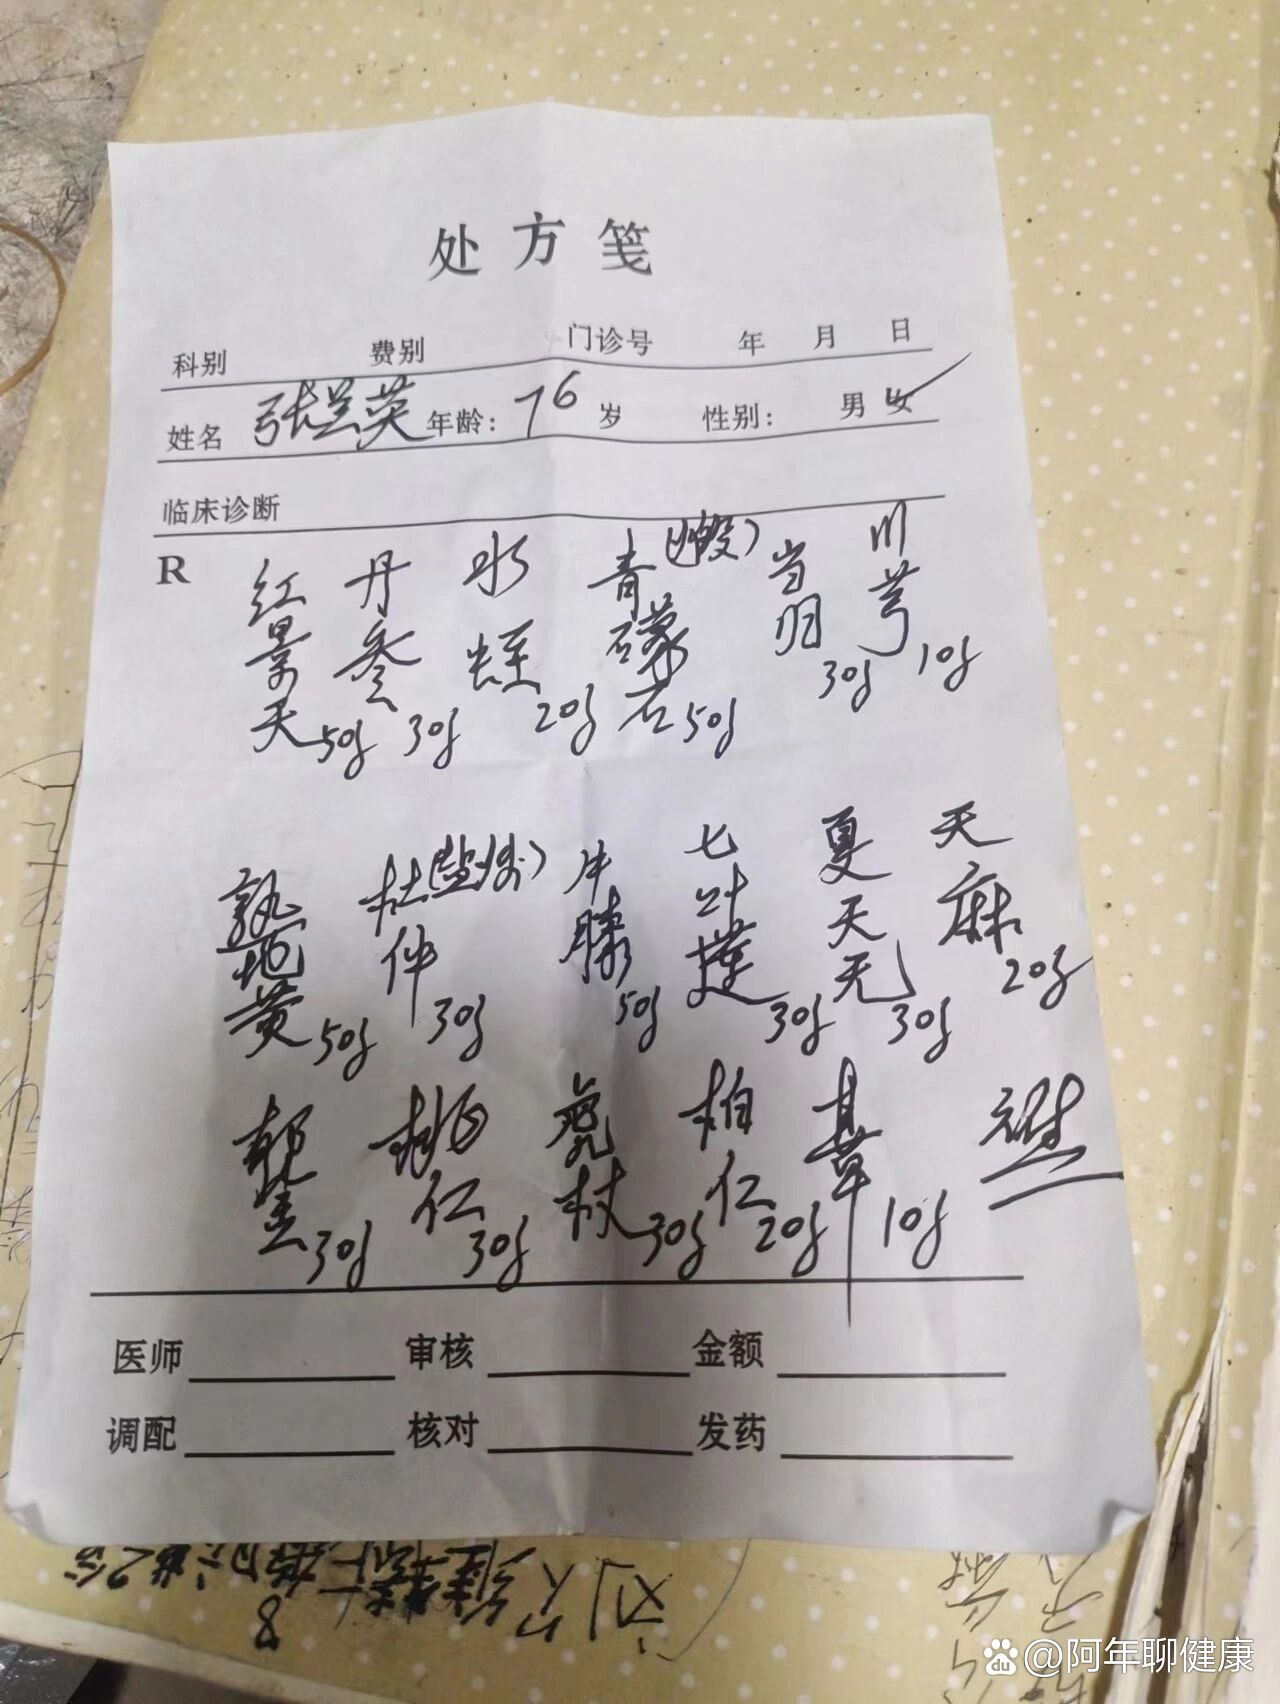 处方笺
科别 费别 门诊号 年 月 日
姓名 张兰英 年龄: 76 岁 性别: 男 女
临床诊断
R
红景天 50g 丹参 30g 水蛭 20g 青礞石(煅) 50g 当归 30g 川芎 10g
熟地黄 50g 杜仲(盐炒) 30g 牛膝 50g 七叶莲 30g 夏天无 30g 天麻 20g
郁金 30g 桃仁 30g 虎杖 30g 柏仁 20g 甘草 10g
医师 审核 金额
调配 核对 发药
8
@阿年聊健康